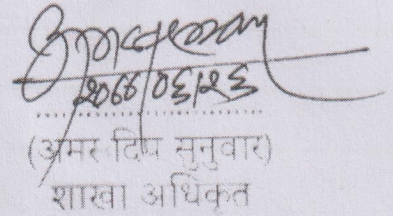 २०७७/०६/२६
(अमर दिप सुनुवार)
शाखा अधिकृत